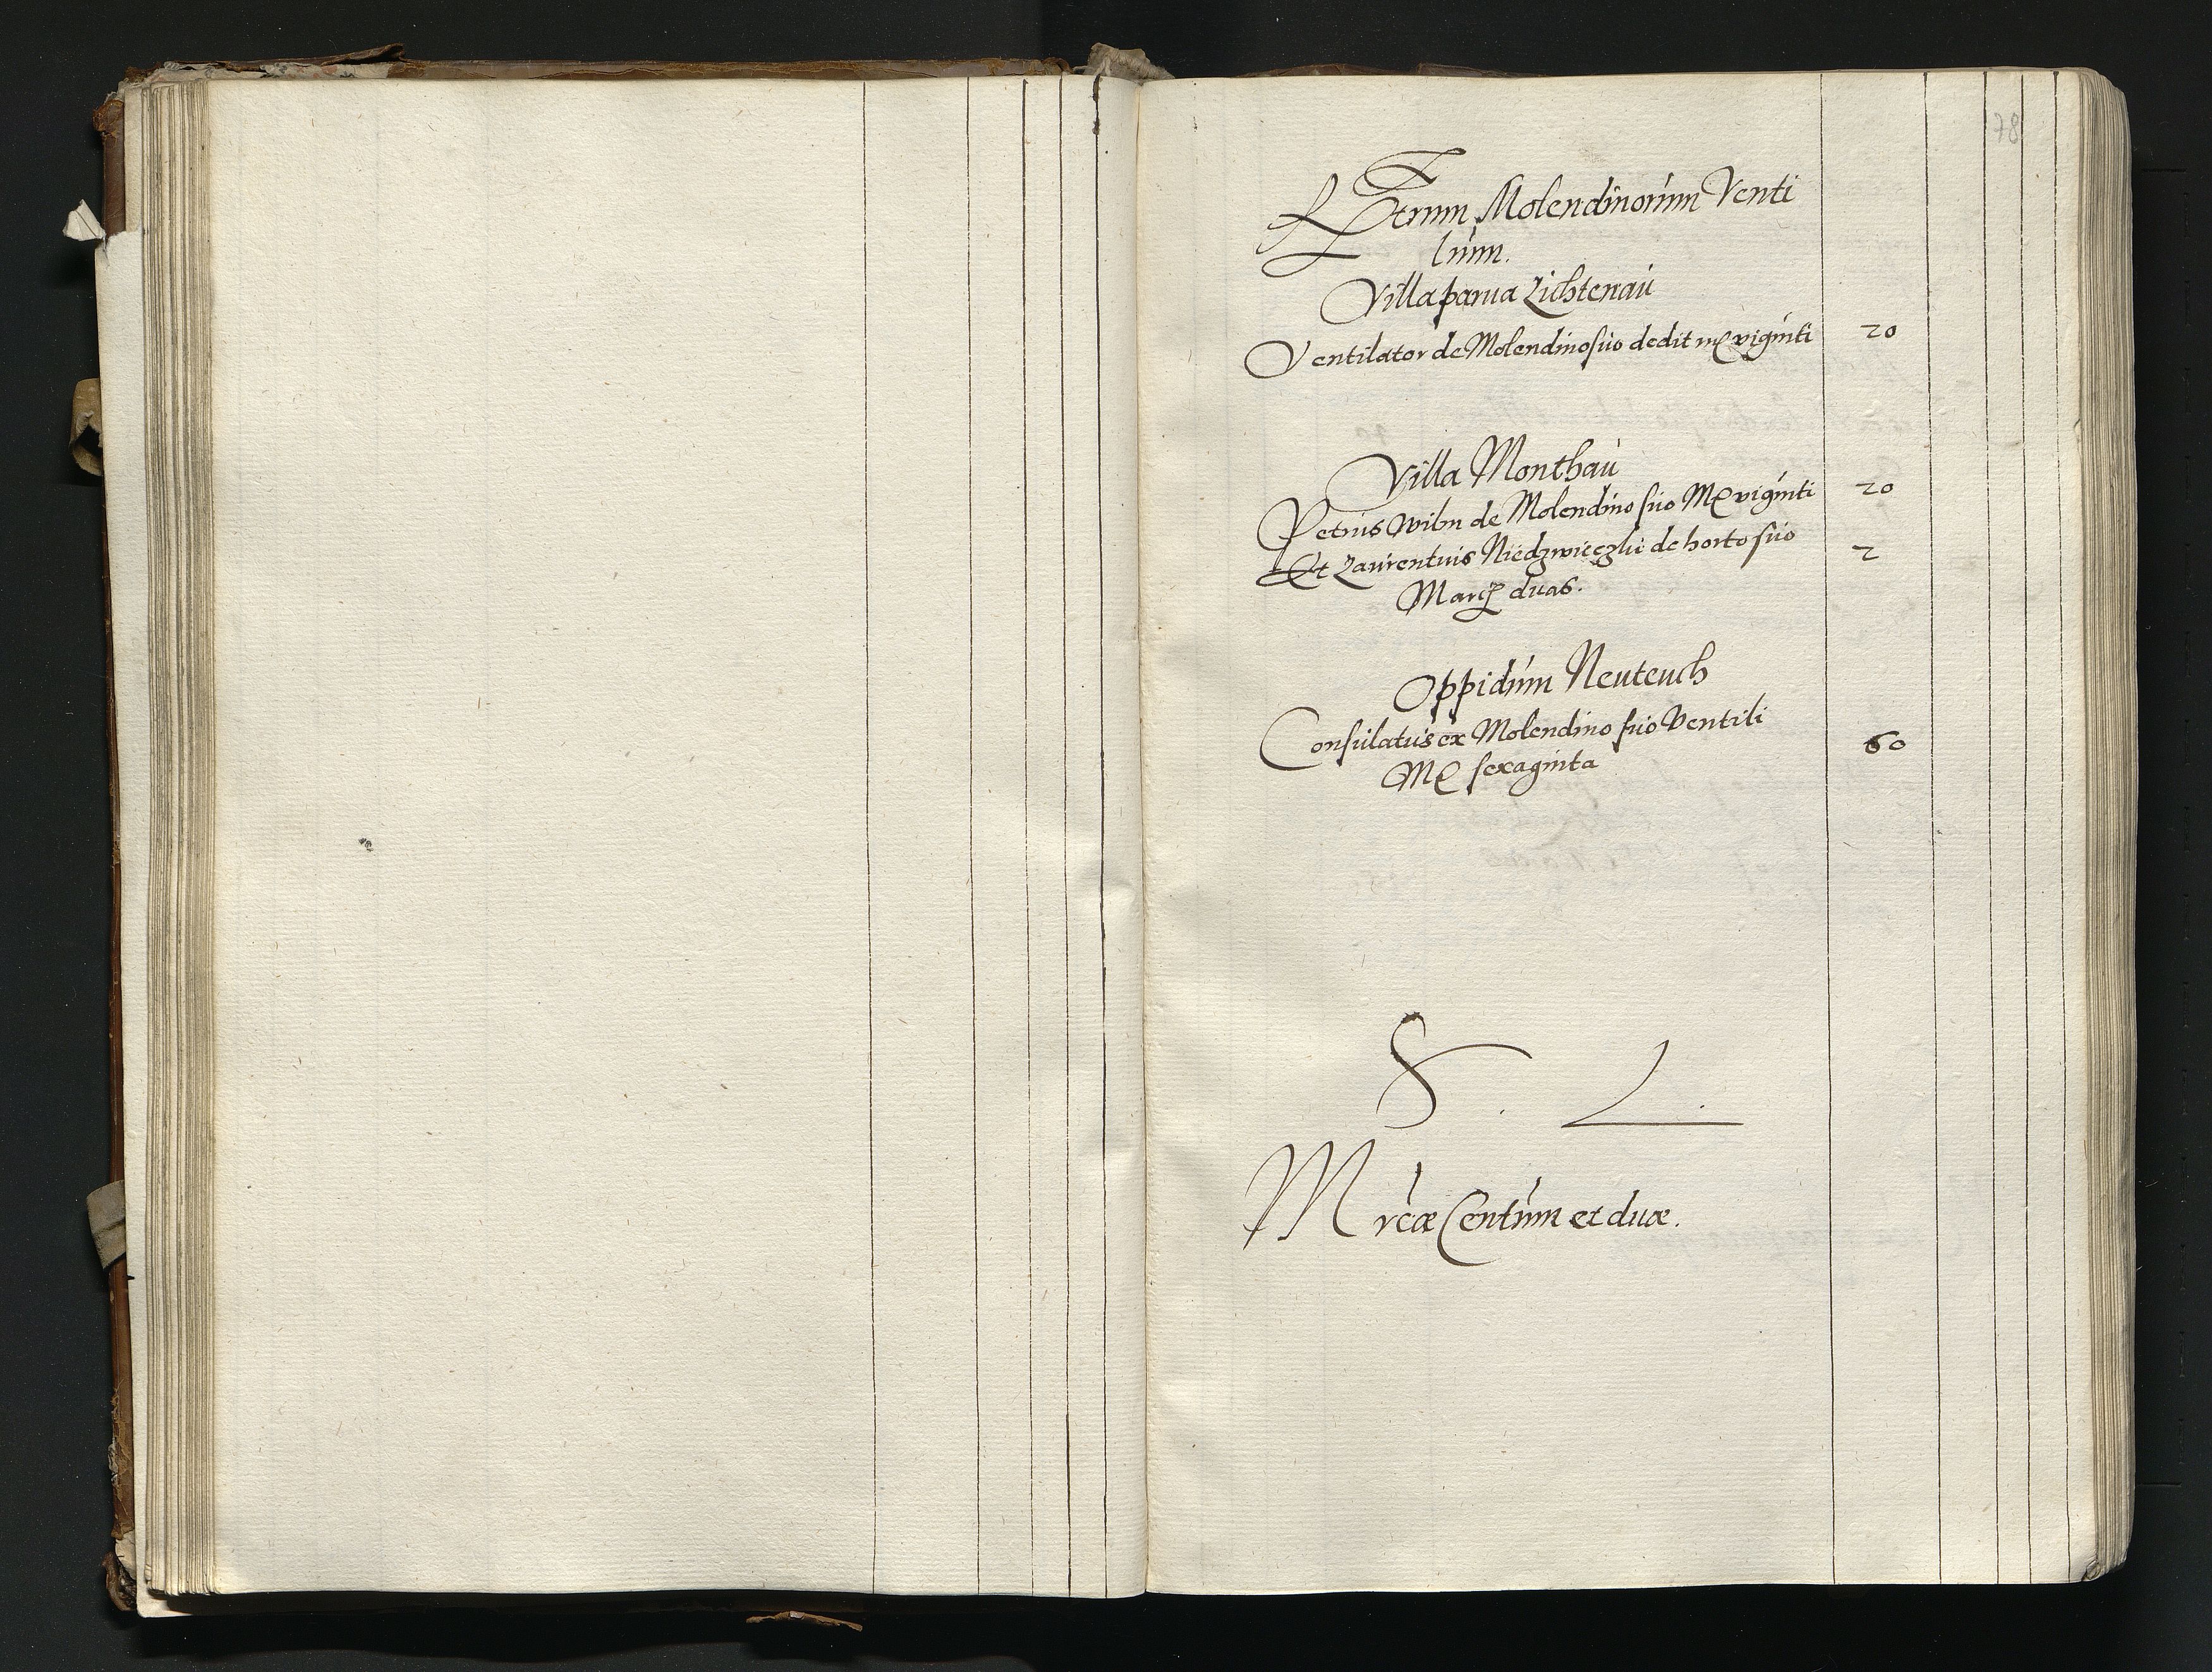 78
Molendinorum Venti
lium.
Villa parua Lichtenau
Ventilator de Molendino suo dedit mę viginti 20
Villa Monthau
Petrus Wibn de Molendino suo Mę viginti 20
Et Laurentius Niedzwieczki de horto suo 2
Marcę duas.
Oppidum Neuteuch
Consulatus ex Molendino suo Ventili
Mę sexaginta 60
S. L.
Mrcæ Centum et duæ.